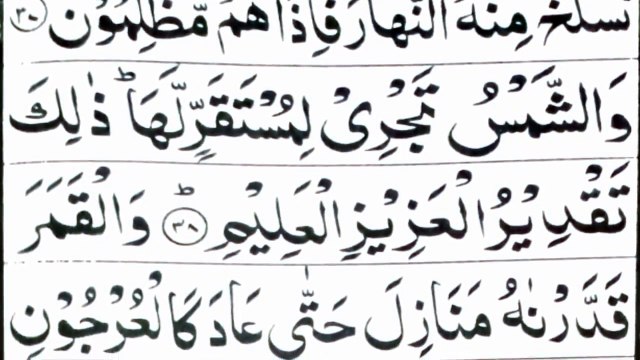 نَسْلَخُ مِنْهُ النَّهَارَ فَاِذَا هُمْ مُّظْلِمُوْنَ ۝۳۷
وَالشَّمْسُ تَجْرِيْ لِمُسْتَقَرٍّ لَّهَا ؕ ذٰلِكَ
تَقْدِيْرُ الْعَزِيْزِ الْعَلِيْمِ ؕ۝۳۸ وَالْقَمَرَ
قَدَّرْنٰهُ مَنَازِلَ حَتّٰى عَادَ كَالْعُرْجُوْنِ